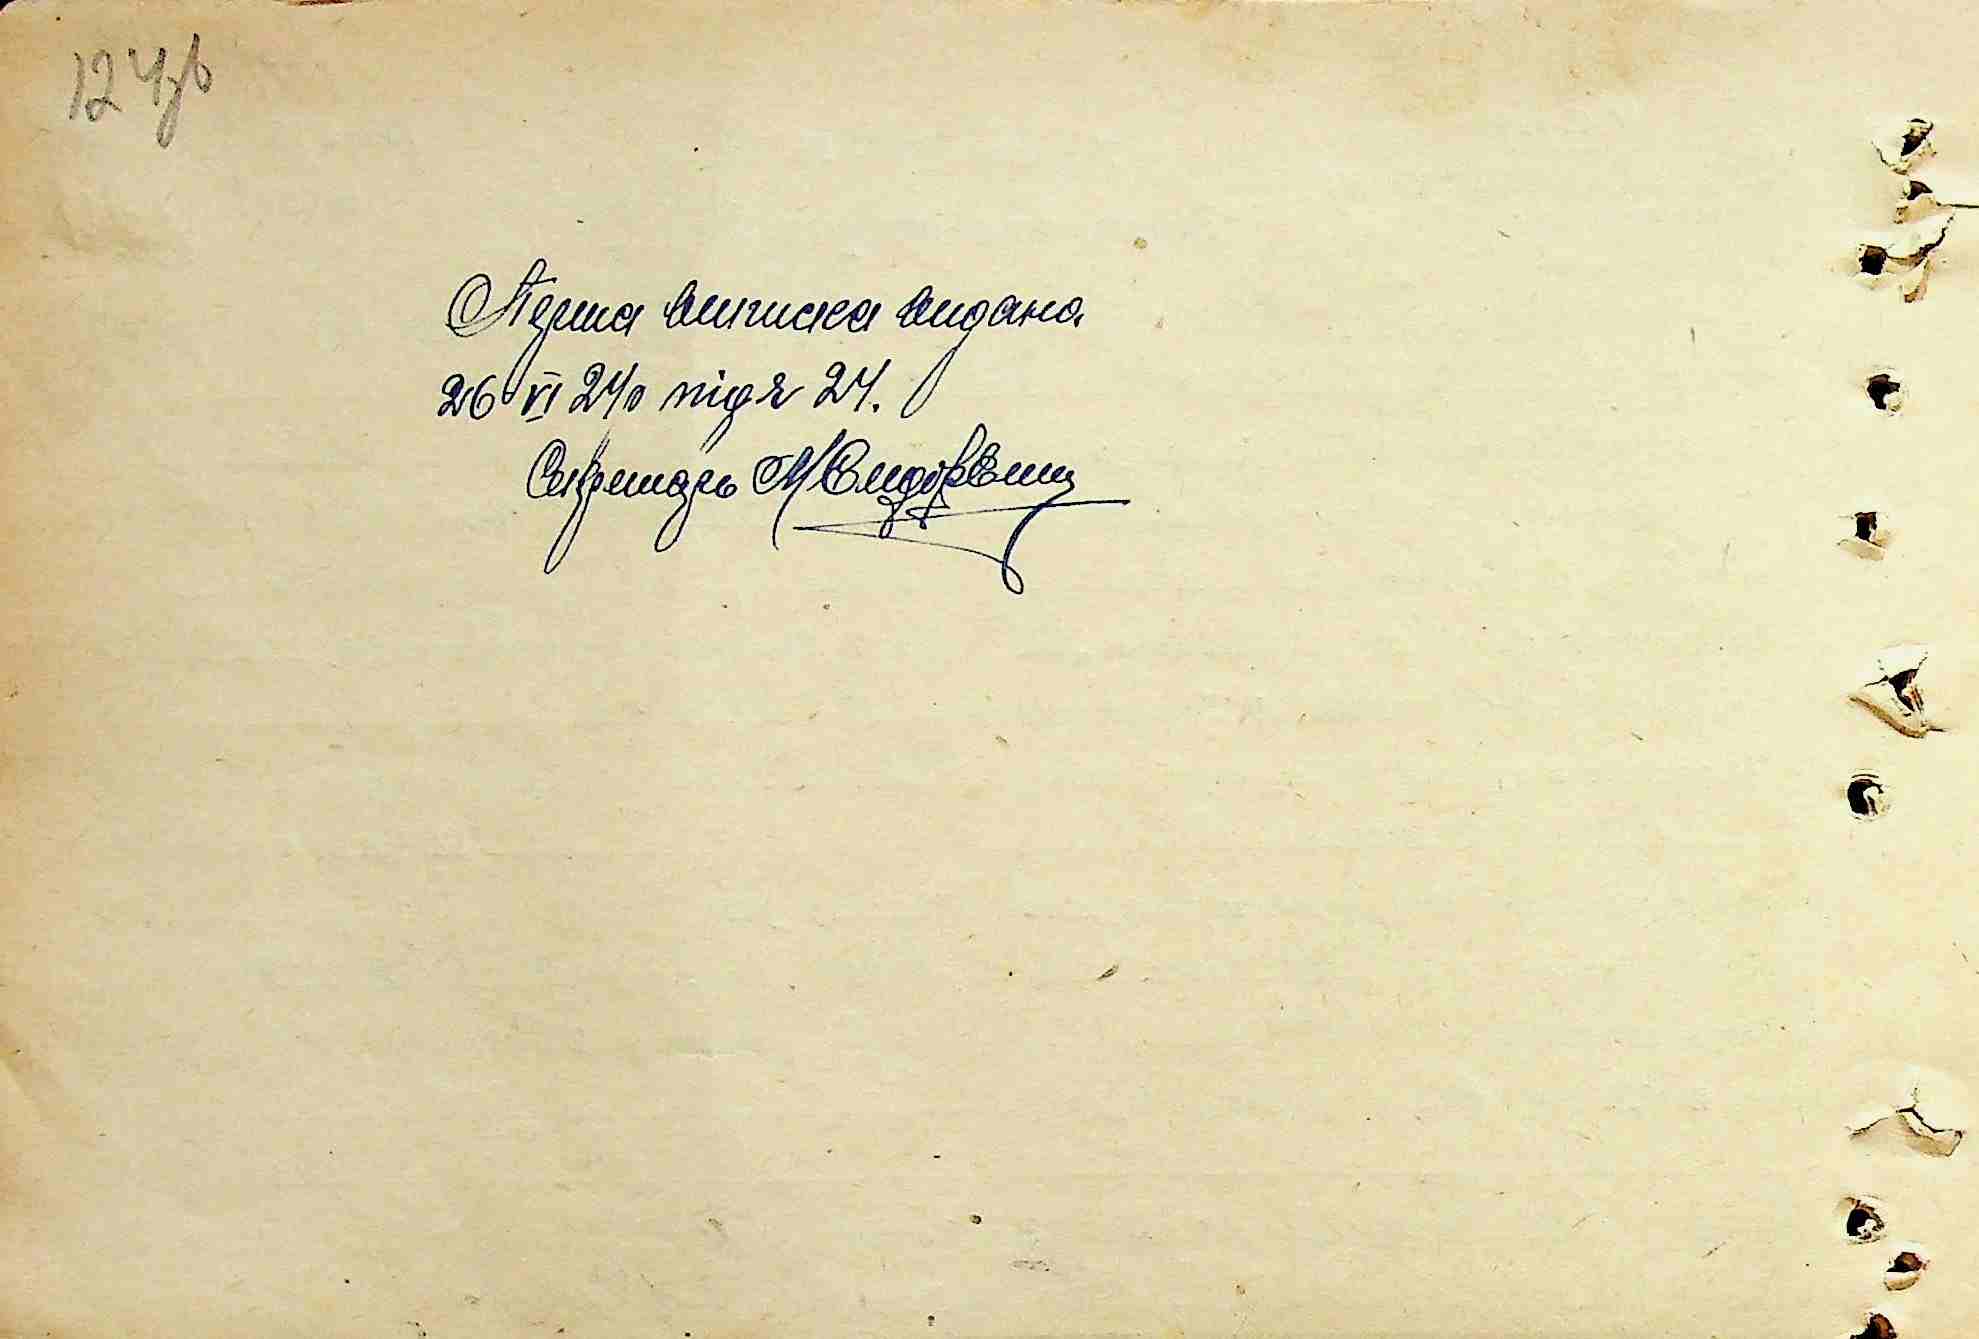 124зв
Перша виписка видана
26 VI 24р під № 24.
Секретарь